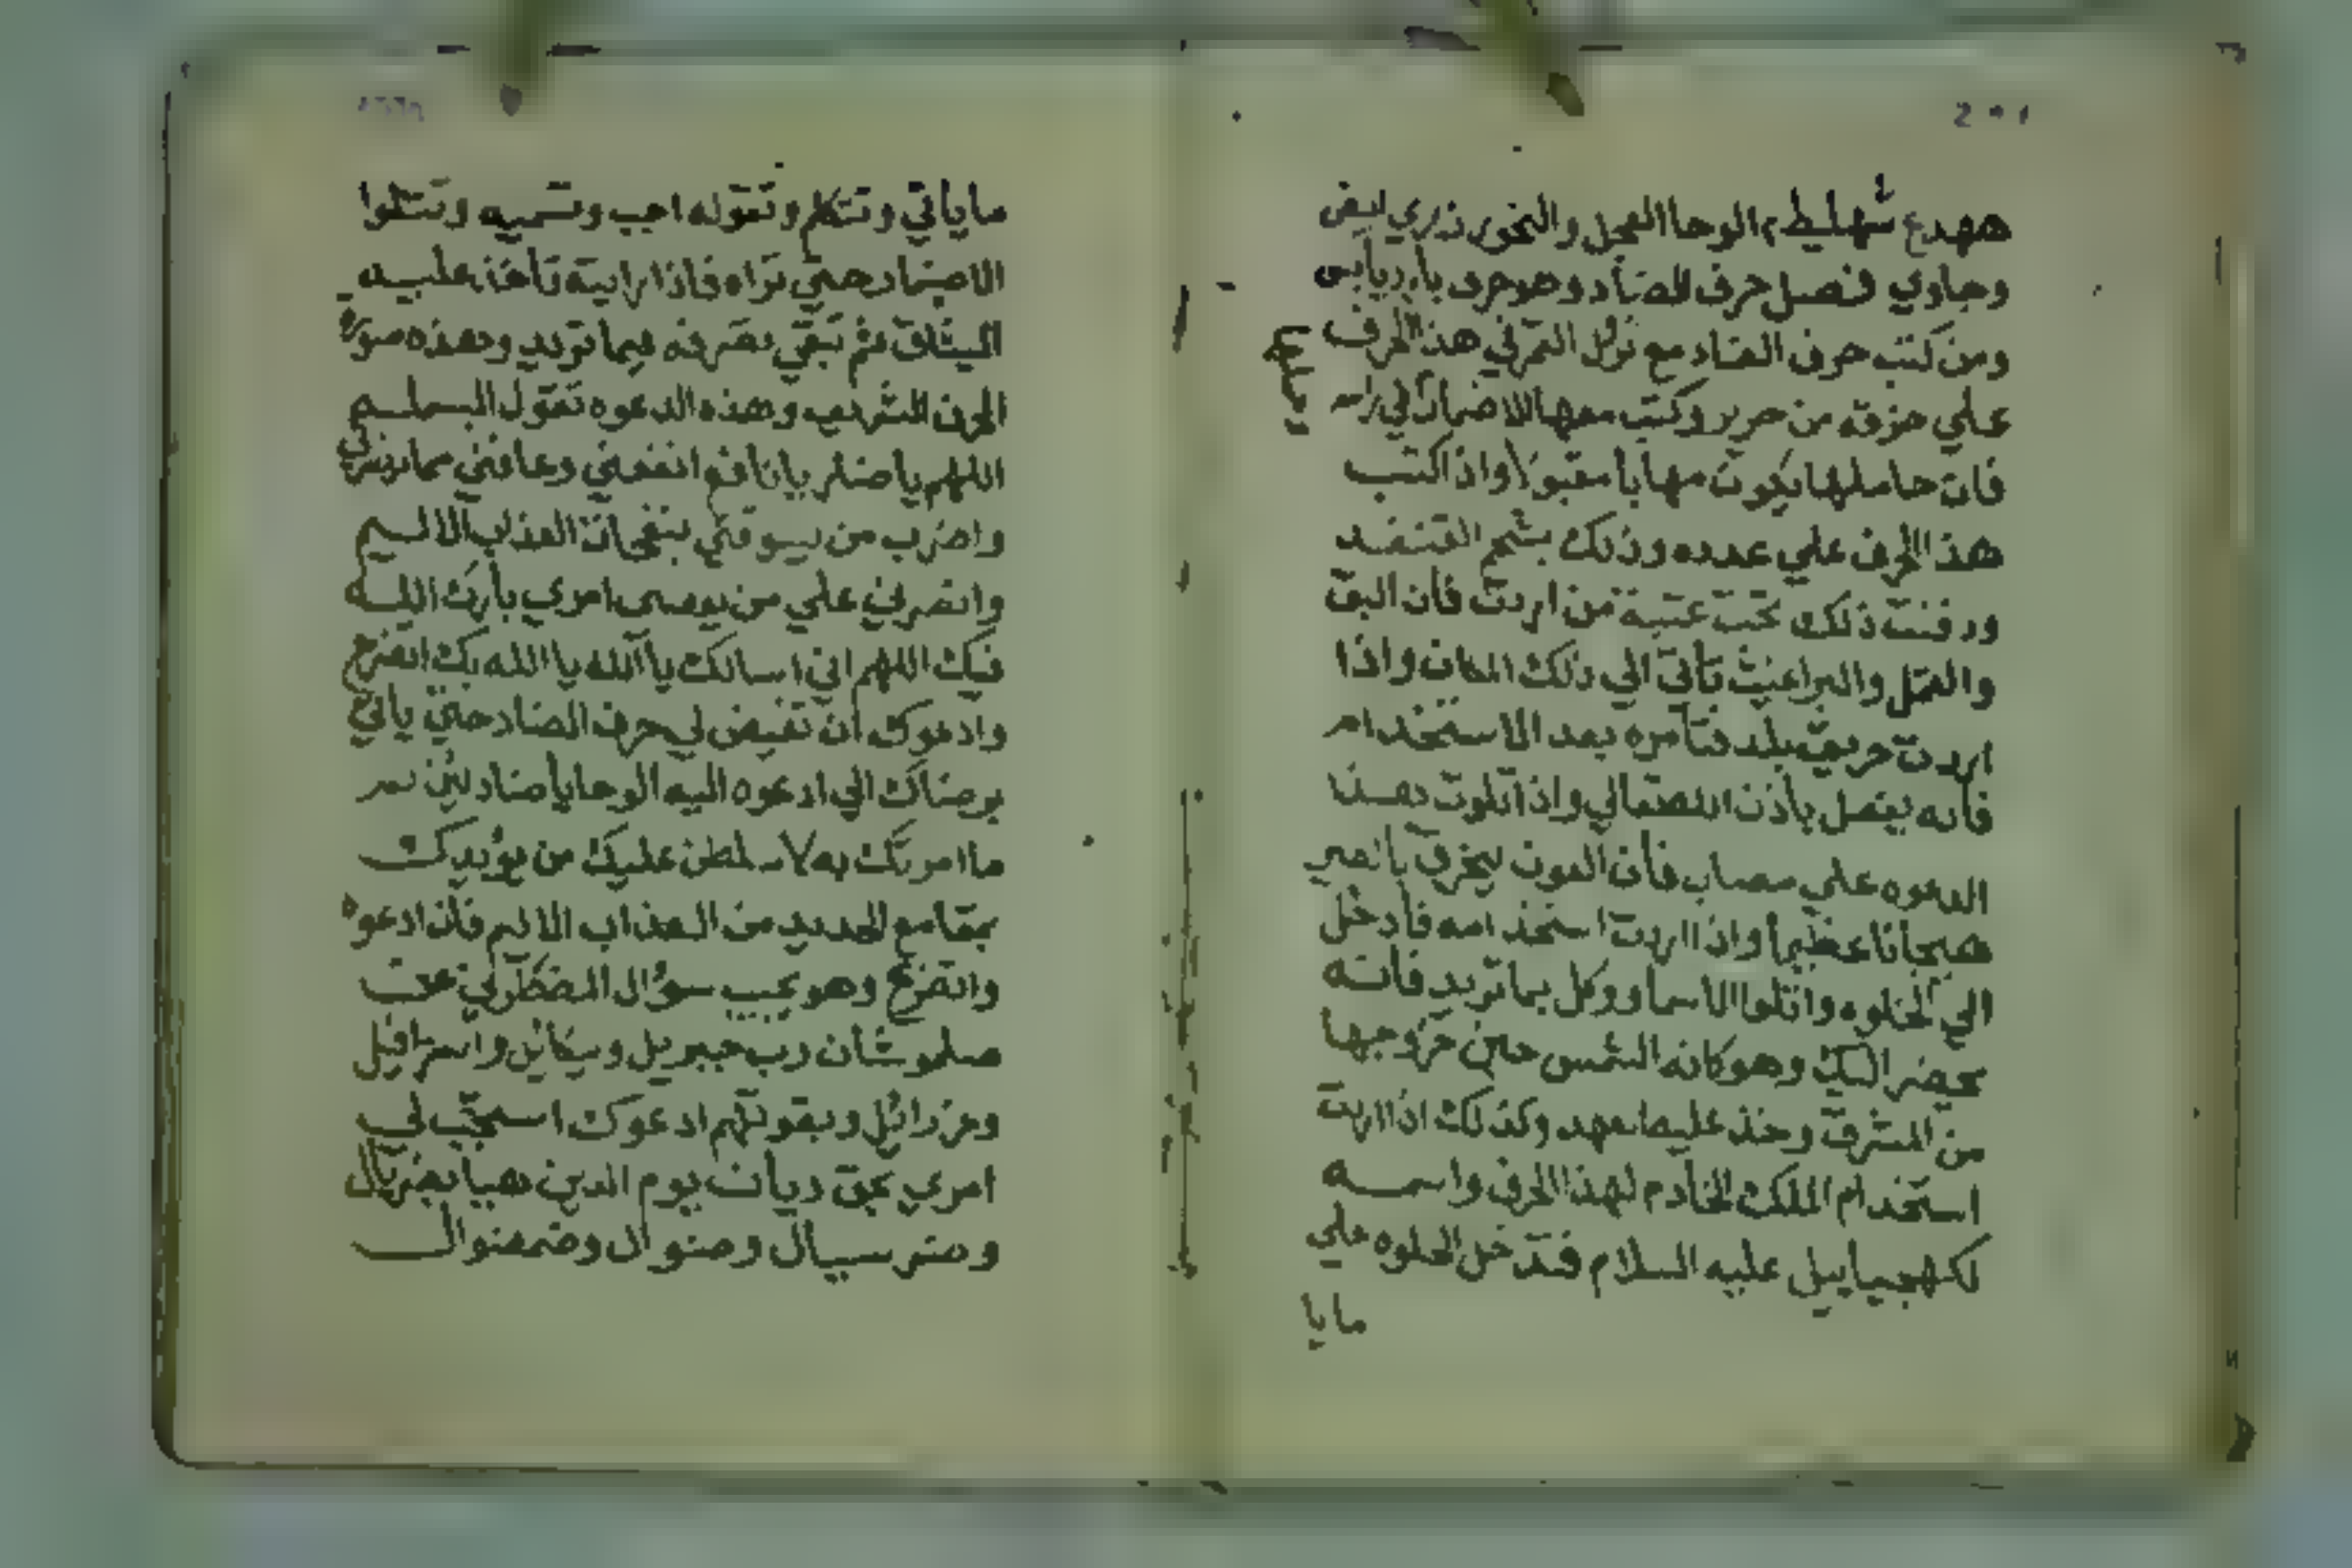 ههدع شهلطط م الوحا العجل والبخور زري ليقي
وجاوي فصل حرف الضاد وهو حرف بارد يابس
ومن كتب حرف الضاد مع نزل القمر في هذا الحرف
علي خرقه من حرير وكتب معها الاضمار في راس
فان حاملها يكون مهابا مقبولا واذا كتب
هذا الحرف علي عدده وذلك بشحم القنفد
ودفنت ذلك تحت عتبة من اردت فان البق
والقمل والبراغيث تاتي الي ذلك المكان واذا
اردت حريق بلد فتامره بعد الاستخدام
فانه يفعل باذن الله تعالي واذا تلوت هذا
الدعوه علي مصاب فان العون يحرق بالصير
هيجانا عظيما واذا اردت استخدامه فادخل
الي الخلوه واتلوا الاسما ووكل بما تريد فانه
يحضر اليك وهو كانه الشمس حين خروجها
من المشرق وخذ عليه العهد وكذلك اذا اردت
استخدام الملك الخادم لهذا الحرف واسمه
كهجياييل عليه السلام فتدخل الخلوه علي
مايا
ما ياتي وتتكلم وتقوله اجب وتسميه وتتلوا
الاضمار حتي تراه فاذا رايته تاخذ عليه
الميثاق ثم تبقي تصرفه فيما تريد وهذه صورة
الحرف الشريف وهذه الدعوه تقول البسمله
اللهم يا ضار يا نافع انفعني وعافني مما يضرني
واضرب من يسوقني بنفحات العذاب الاليم
وانصرني علي من يعصي امري بارك الله
فيك اللهم اني اسالك يا الله يا الله بك اتضرع
وادعوك ان تفيض لي حرف الضاد حتي ياتي
برضاك الي ادعوه اليه الوحا يا ضاد لين تمر
ما امرتك به لا سلطن عليك من يؤيدك
بمقامع الحديد من العذاب الاليم فان ادعوه
واتضرع وهو يجيب سؤال المضطر لي بحق
صلموشان رب جبريل وميكائل واسرافيل
وعزرائيل وبقوتهم ادعوك استجب لي
امري بحق ديان يوم الدين هيا بضربال
وصرسيال وصنوال وضمضنوال